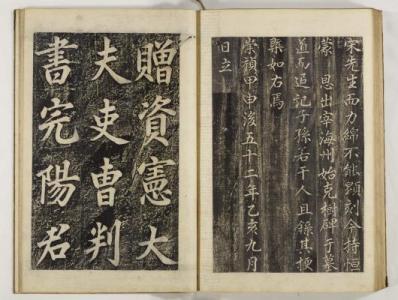 宋先生而力綿不能顯刻今持恒
蒙 恩出宰海州始克樹碑于墓
道而追記子孫若干人且錄其梗
槩如右焉
崇禎甲申後五十二年乙亥九月
日立
贈資憲大
夫吏曹判
書完陽君